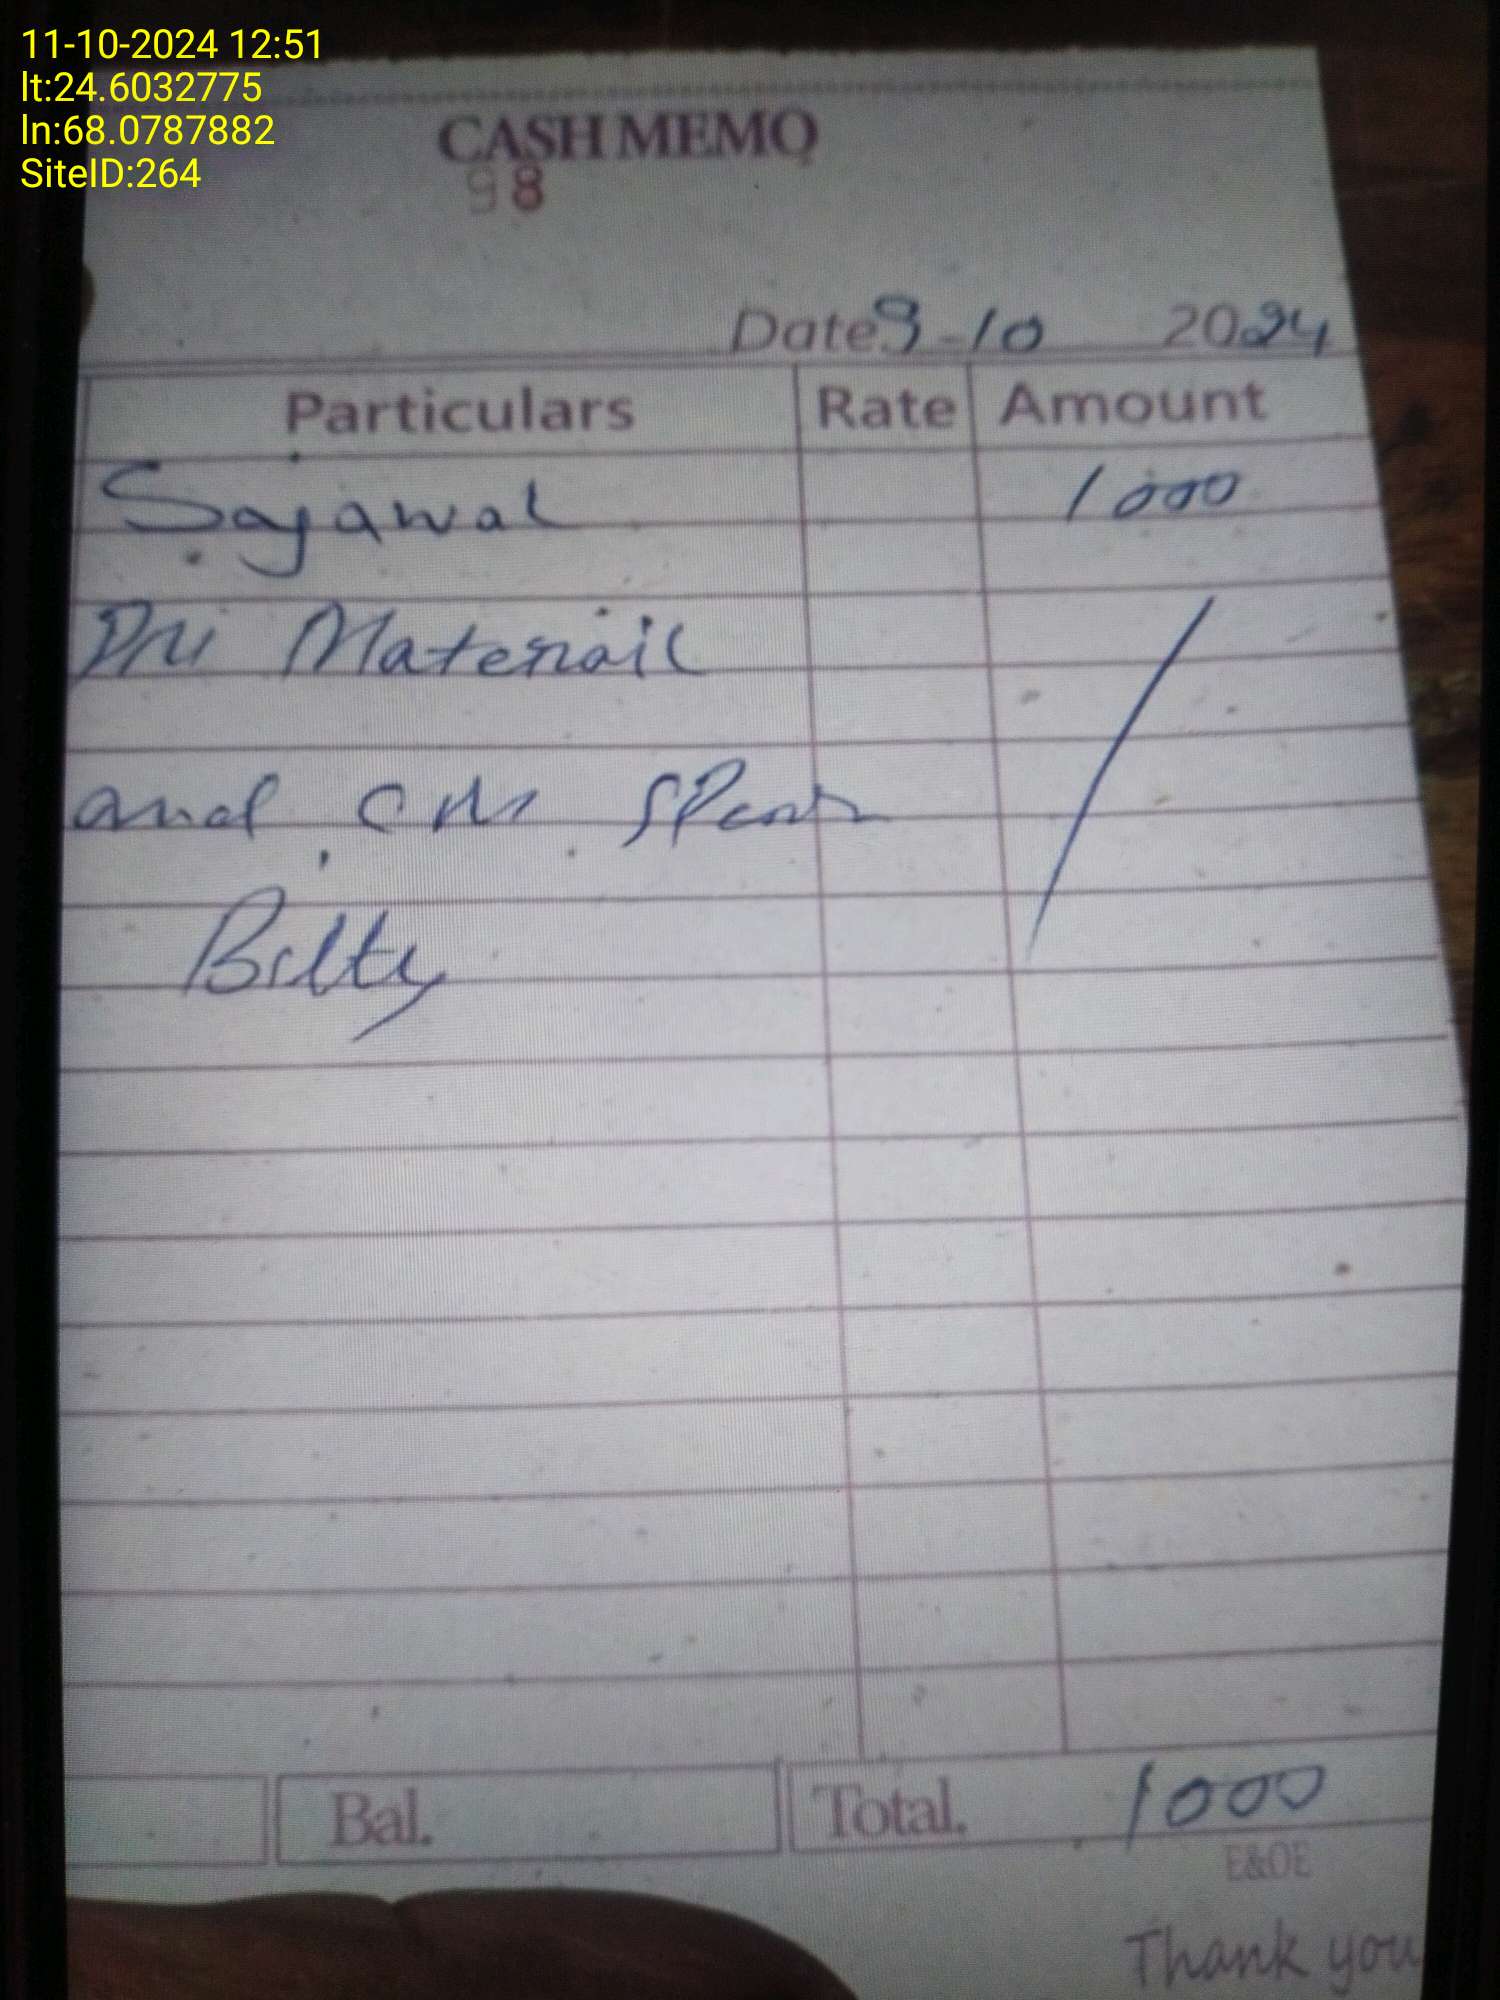 11-10-2024 12:51
lt:24.6032775
ln:68.0787882
SiteID:264
CASH MEMO
98
Date 9-10 2024
Particulars Rate Amount
Sajawal 1000
Materail
and
Bilty
Bal. Total. 1000
E&OE
Thank you